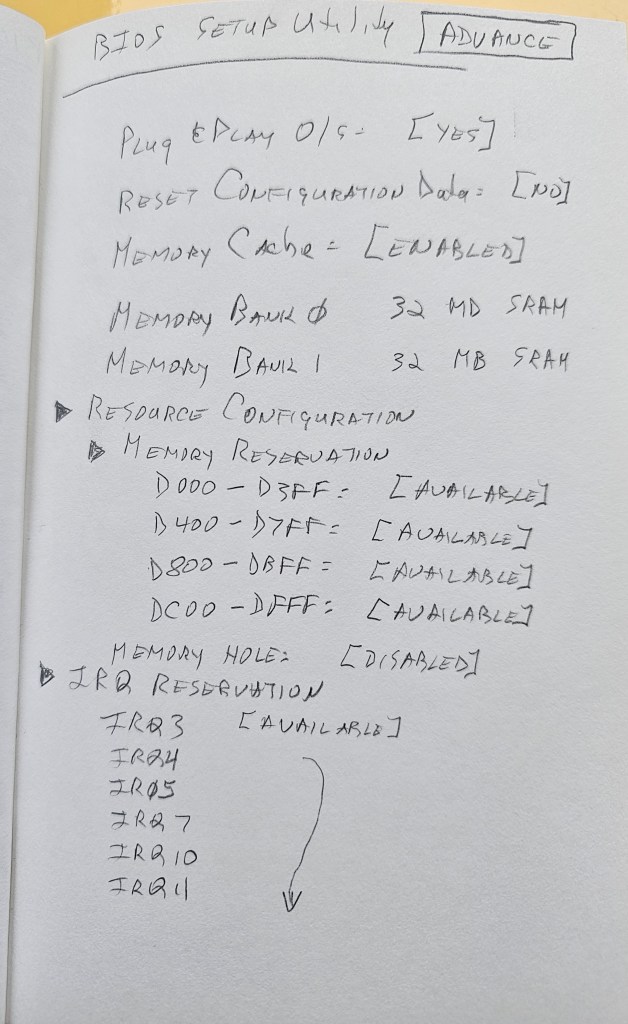 BIOS SETUP Utility [ADVANCE]
PLUG & PLAY O/S: [YES]
RESET CONFIGURATION Data: [NO]
MEMORY Cache: [ENABLED]
MEMORY BANK 0 32 MD SRAM
MEMORY BANK 1 32 MB SRAM
▶ RESOURCE CONFIGURATION
▶ MEMORY RESERVATION
D000 - D3FF: [AVAILABLE]
D400 - D7FF: [AVAILABLE]
D800 - DBFF: [AVAILABLE]
DC00 - DFFF: [AVAILABLE]
MEMORY HOLE: [DISABLED]
▶ IRQ RESERVATION
IRQ3 [AVAILABLE]
IRQ4
IRQ5
IRQ7
IRQ10
IRQ11